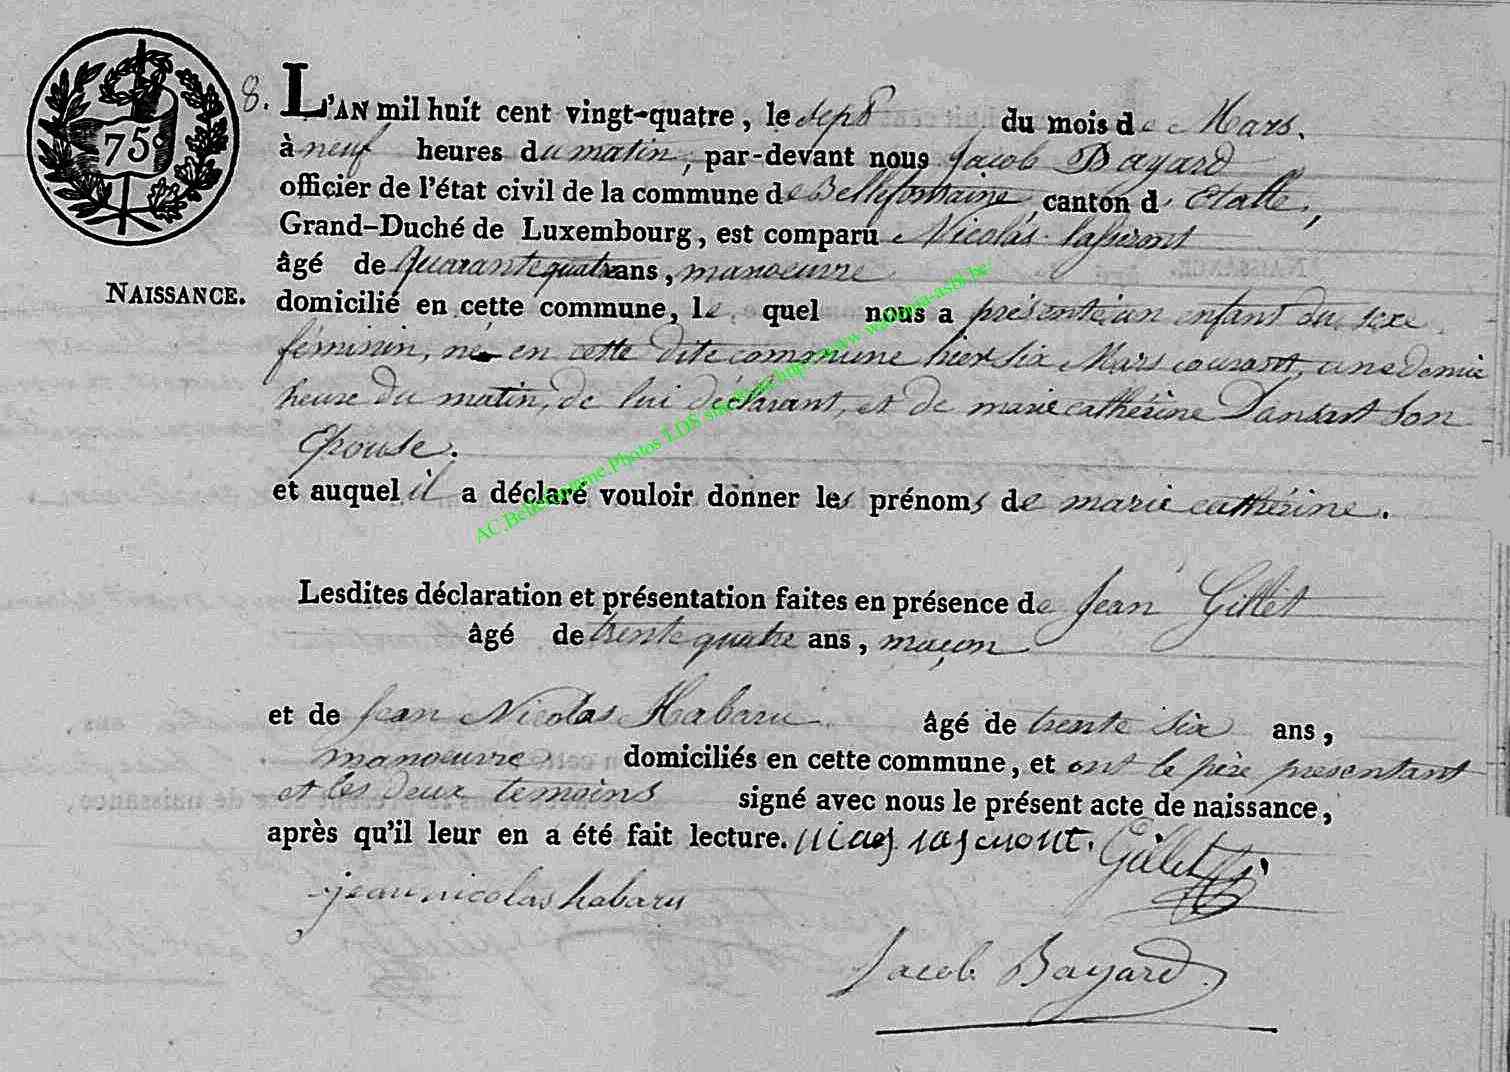 75
8. L'AN mil huit cent vingt-quatre, le sept du mois de Mars,
à neuf heures du matin, par-devant nous Jacob Bayard
officier de l'état civil de la commune de Bellefontaine, canton d'Etalle,
Grand-Duché de Luxembourg, est comparu Nicolas
âgé de Quarante quatre ans, manoeuvre
NAISSANCE.
domicilié en cette commune, le quel nous a présenté un enfant du sexe
féminin, né en cette dite commune hier six Mars courant, une demie
heure du matin, de lui déclarant, et de marie cathérine Dansart son
Epouse.
et auquel il a déclaré vouloir donner les prénoms de marie cathérine.
Lesdites déclaration et présentation faites en présence de Jean Gillet
âgé de trente quatre ans, maçon
et de Jean Nicolas Habaru âgé de trente six ans,
manoeuvre domiciliés en cette commune, et ont le père presentant
et les deux temoins signé avec nous le présent acte de naissance,
après qu'il leur en a été fait lecture. Gillet
jean nicolas habaru
Jacob Bayard
AC Bellefontaine Photos LDS